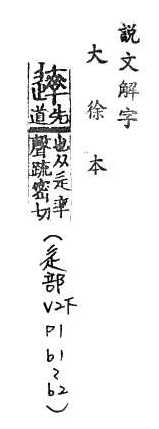 說文解字
大徐本
先道也从辵率聲疏密切
(辵部V2下P1b1~b2)